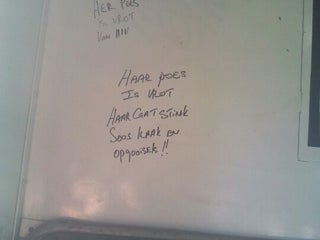 HER POES
IS VROT
VAN MIV
HAAR POES
IS VROT
HAAR GAT STINK
SOOS KAAK EN
OPGOOISEK!!